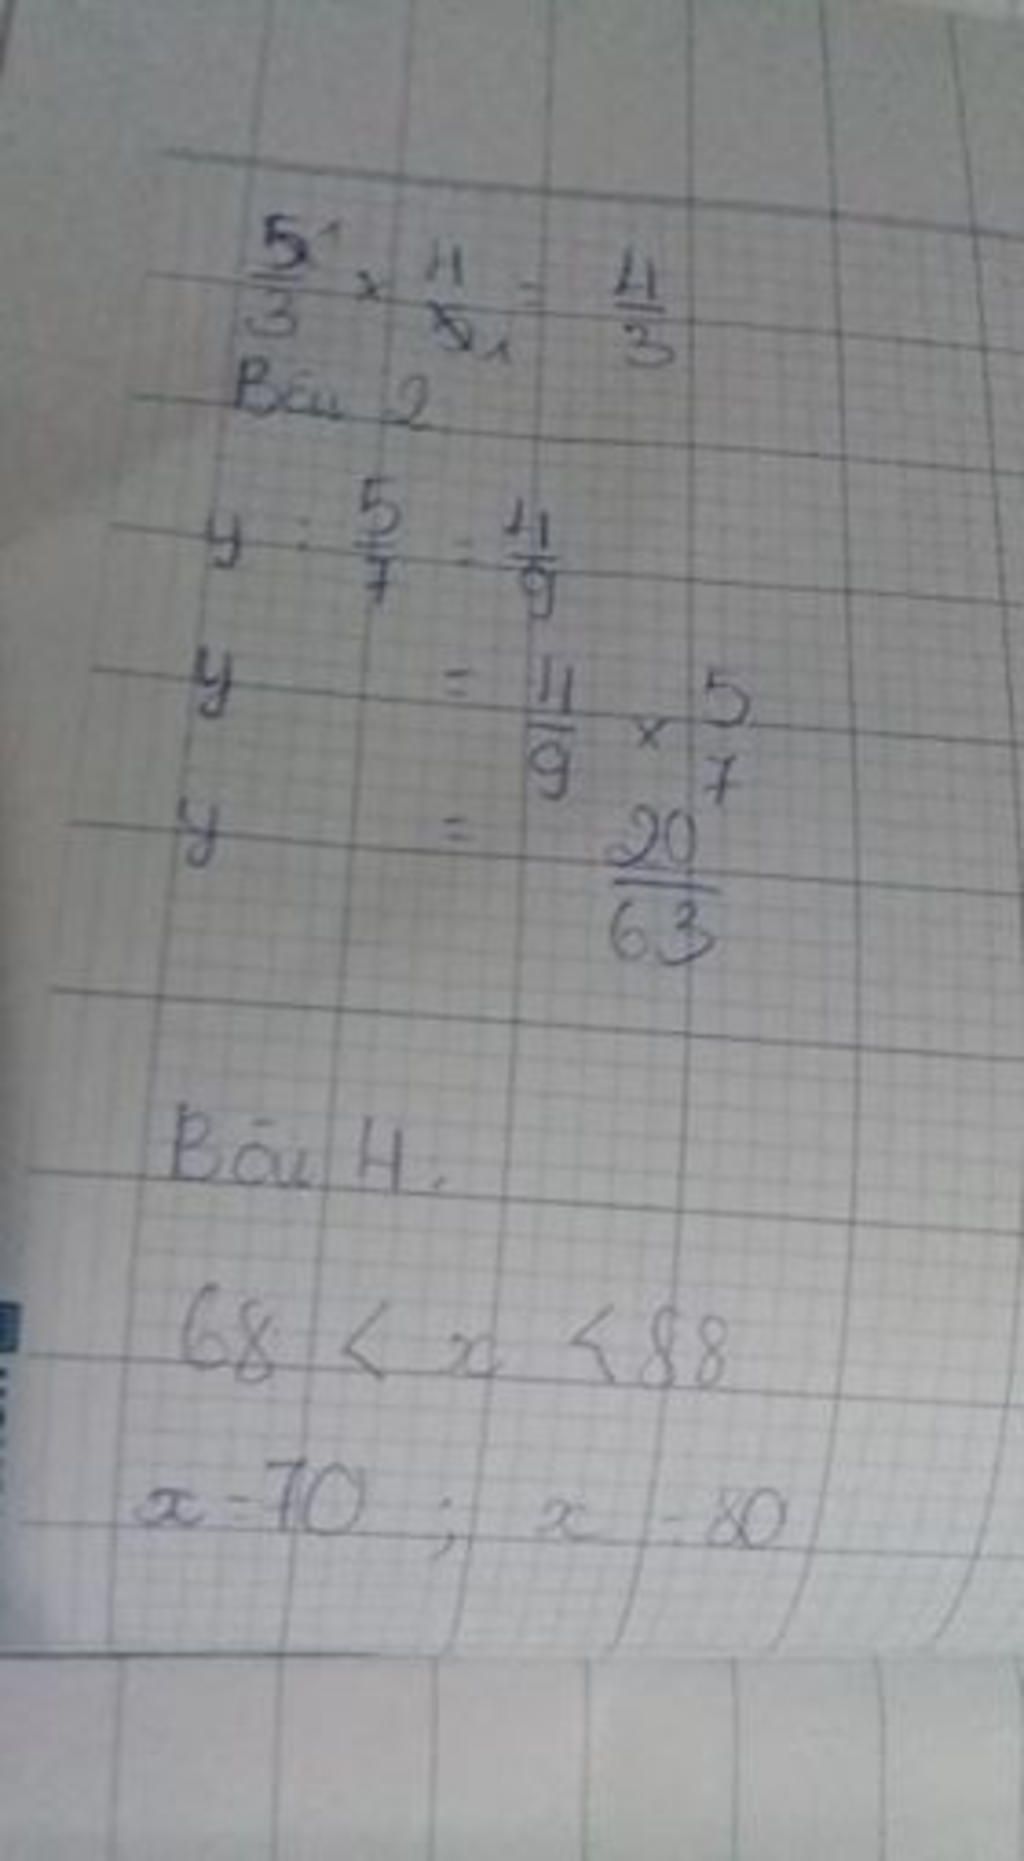 5/3 × 4/5 = 4/3
Bài 2
y : 5/7 = 4/9
y = 4/9 × 5/7
y = 20/63
Bài 4.
68 < x < 88
x = 70 ; x = 80